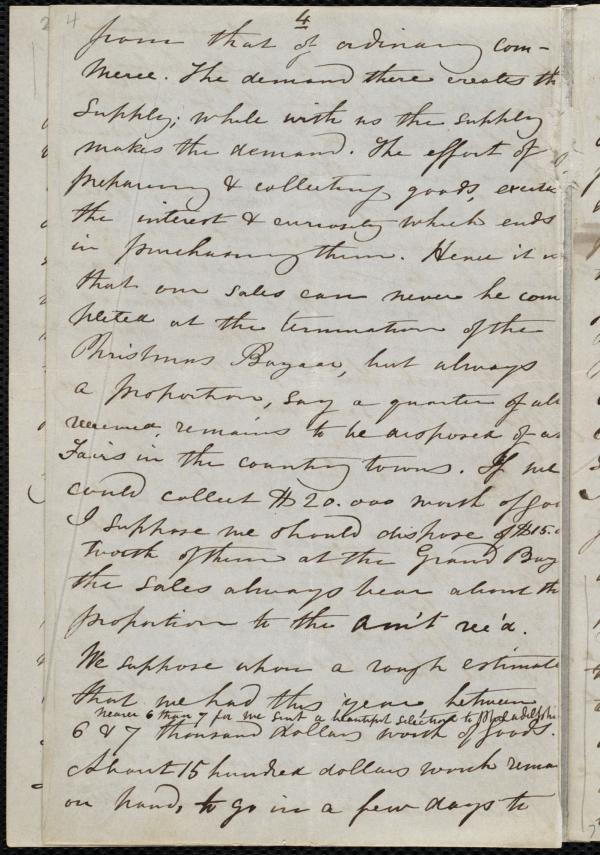 4
4
from that of ordinary com-
merce. The demand there creates th
supply; while with us the supply
makes the demand. The effort of
preparing & collecting goods, excite
the interest & curiosity which ends
in purchasing them. Hence it
that our sales can never be com
pleted at the termination of the
Christmas Bazaar, but always
a proportion, say a quarter of all
received, remains to be disposed of as
Fairs in the country towns. If we
could collect $20.000 worth of goo
I suppose we should dispose of $15.
worth of them at the Grand Baz
the sales always bear about th
proportion to the am't rec'd.
We suppose upon a rough estimate
that we had this year, between
nearer 6 than 7 for we sent a beautiful selection to Philadelphi
6 & 7 thousand dollars worth of goods.
About 15 hundred dollars worth rema
on hand, to go in a few days to